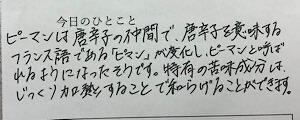 今日のひとこと
ピーマンは唐辛子の仲間で、唐辛子を意味する
フランス語である「ピマン」が変化し、ピーマンと呼ば
れるようになったそうです。特有の苦味成分は、
じっくり加熱することで和らげることができます。